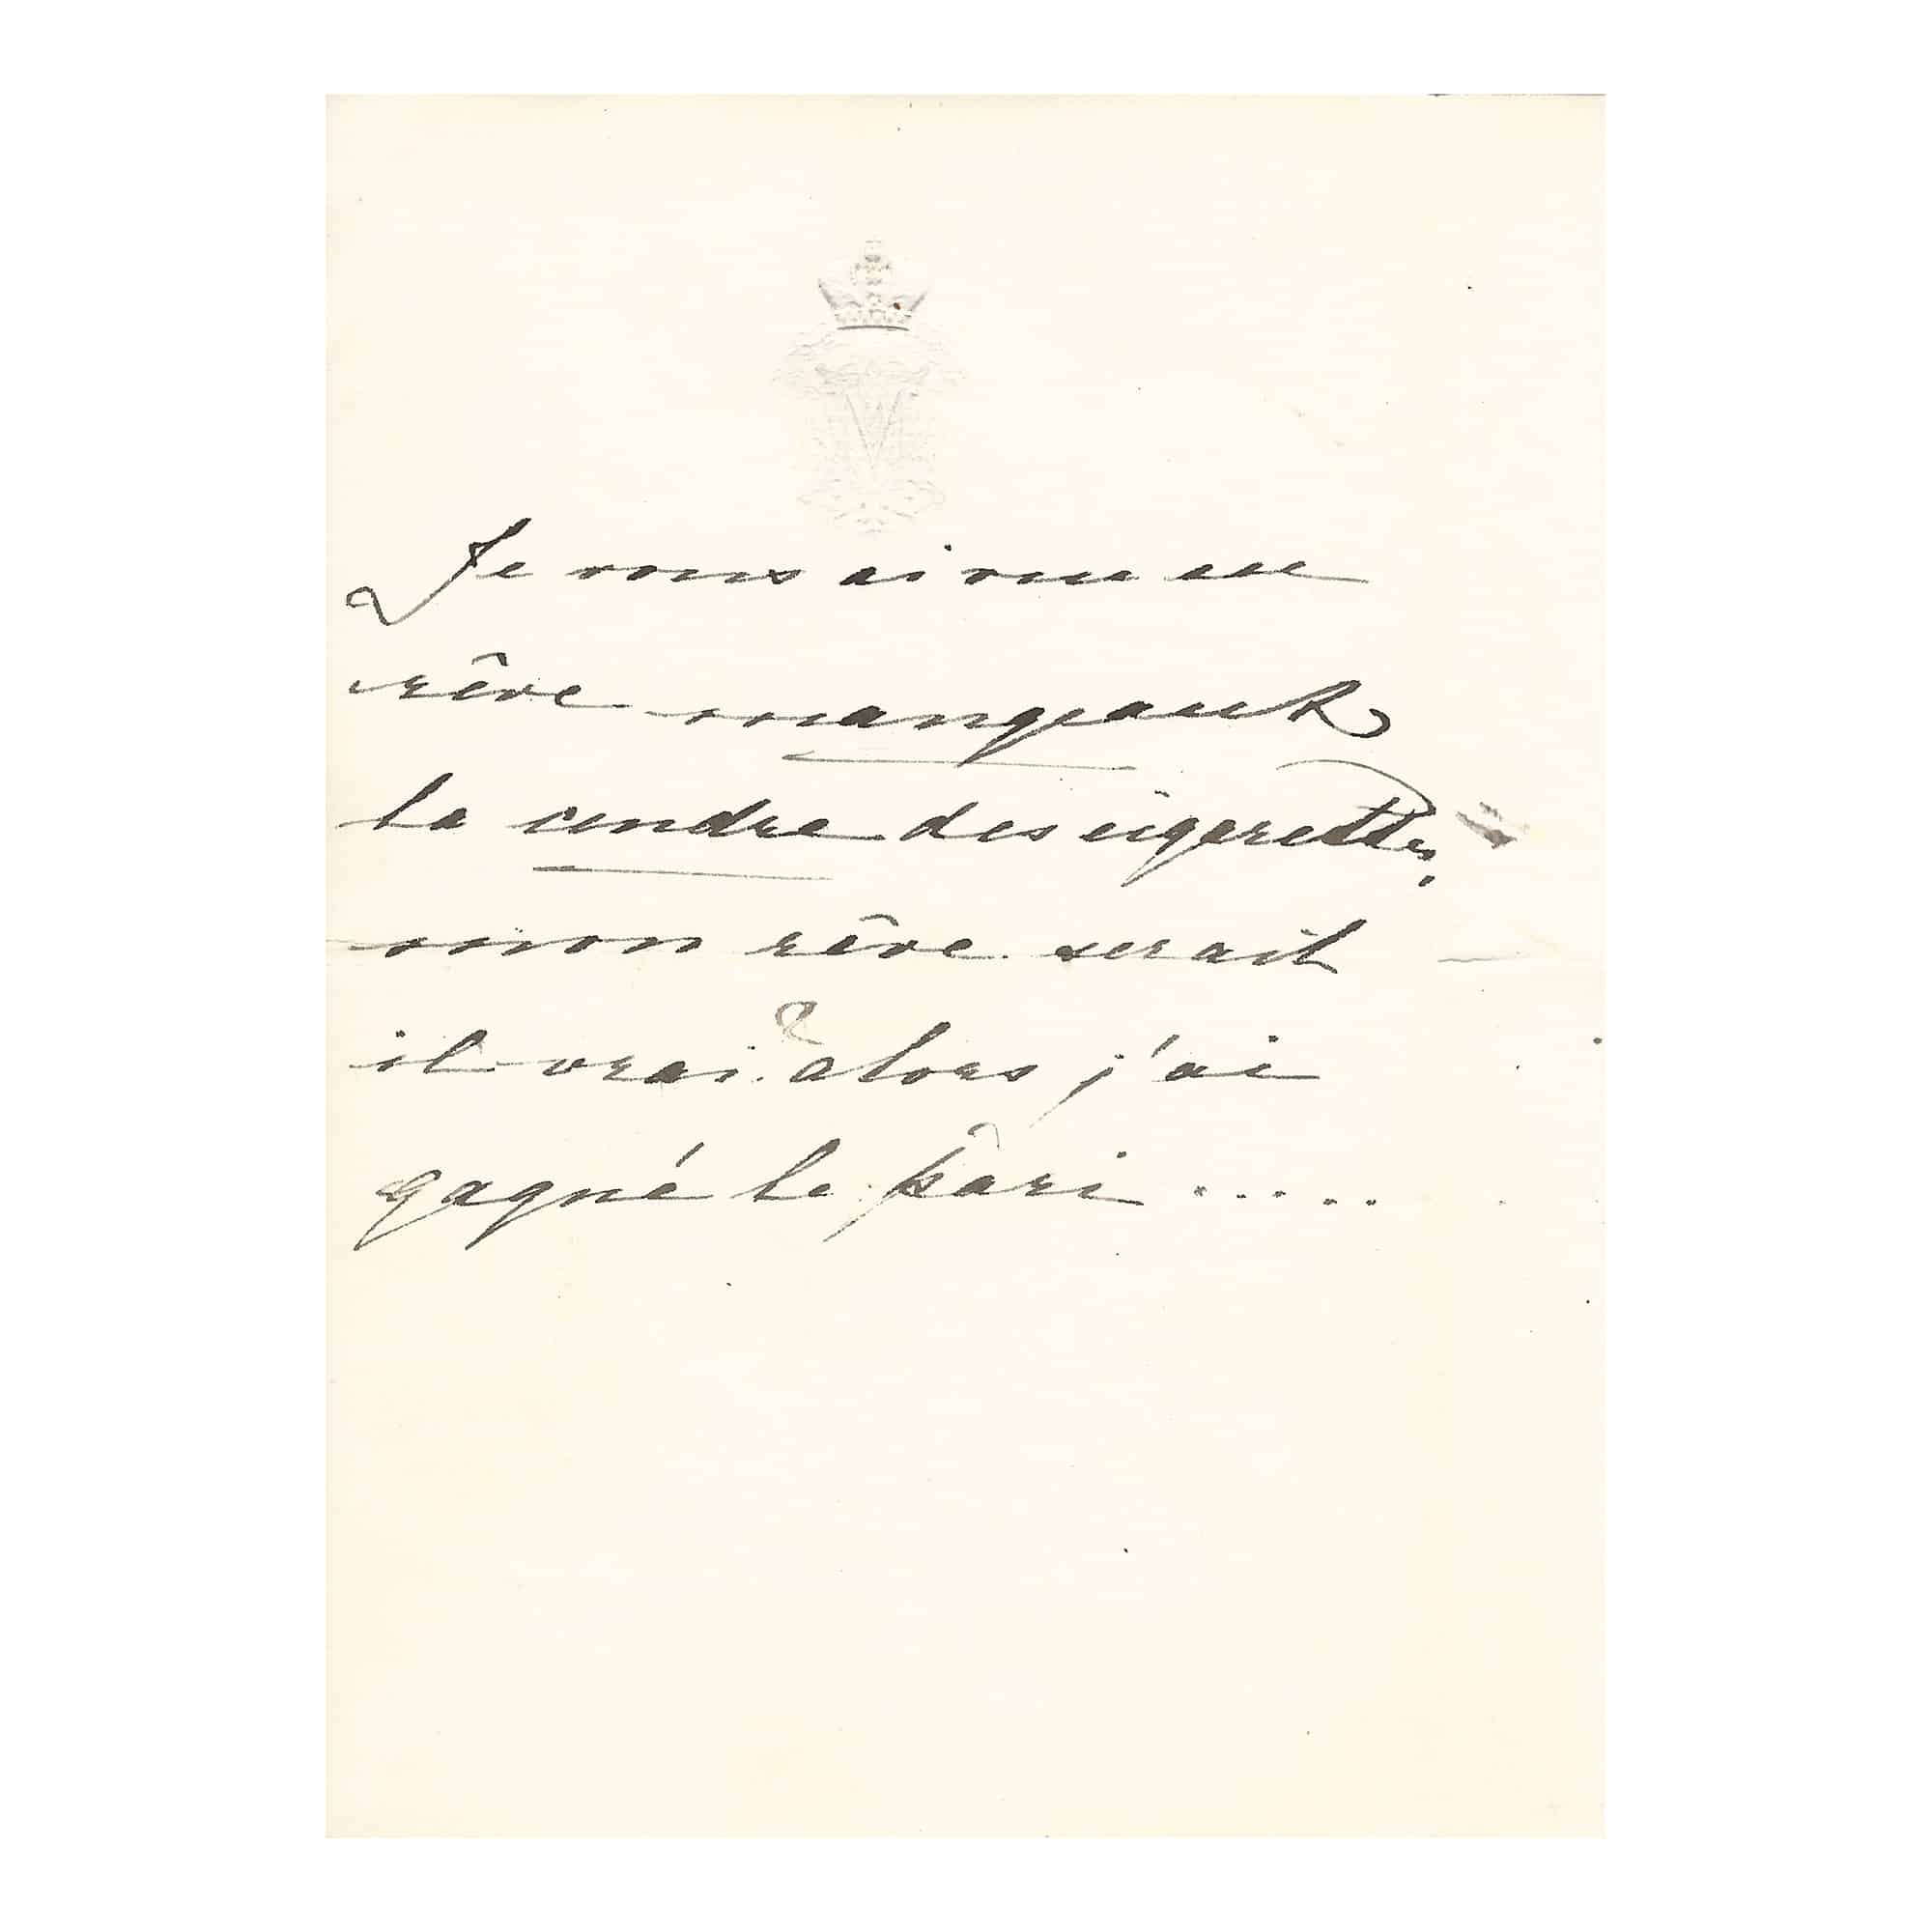 Je vous ai vue en
rêve mangeant
la cendre des cigerettes,
mon rêve serait
il vrai? alors j'ai
gagné le pâri .....